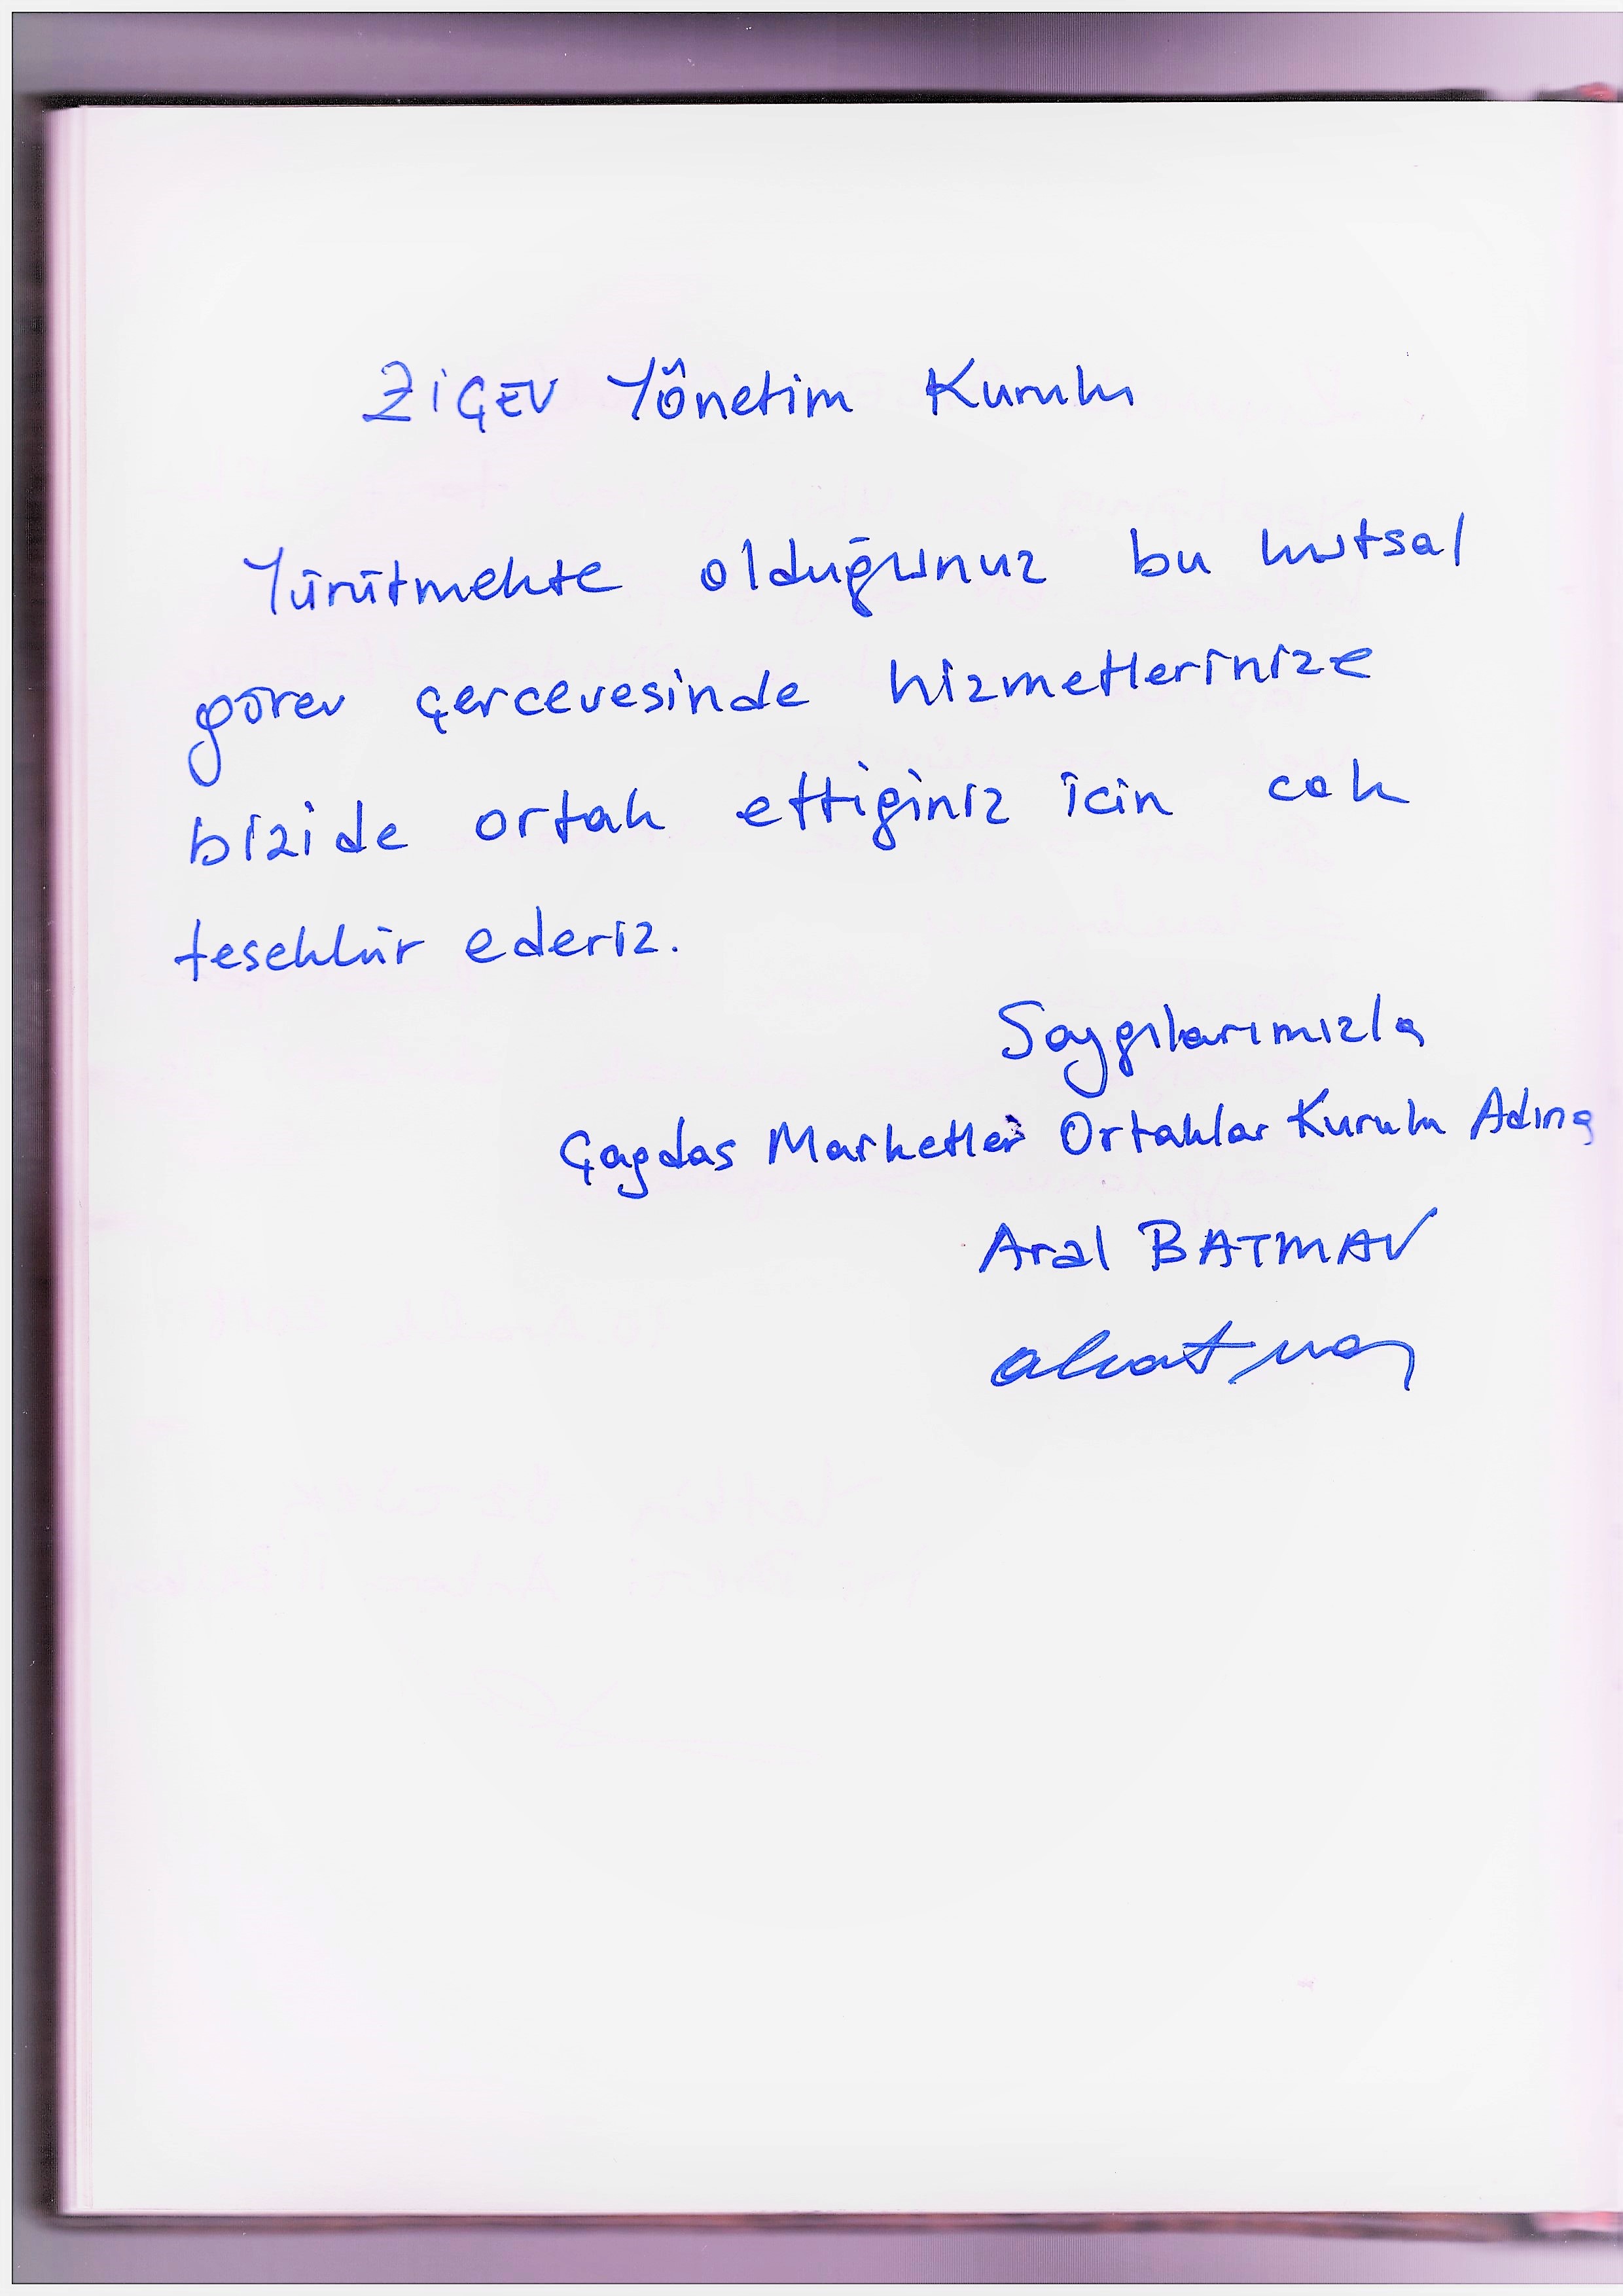 ZİÇEV Yönetim Kurulu
Yürütmekte olduğunuz bu kutsal
görev çercevesinde hizmetlerinize
bizide ortak ettiğiniz icin cok
tesekkür ederiz.
Saygılarımızla
Çagdas Marketler Ortaklar Kurulu Adına
Aral BATMAN